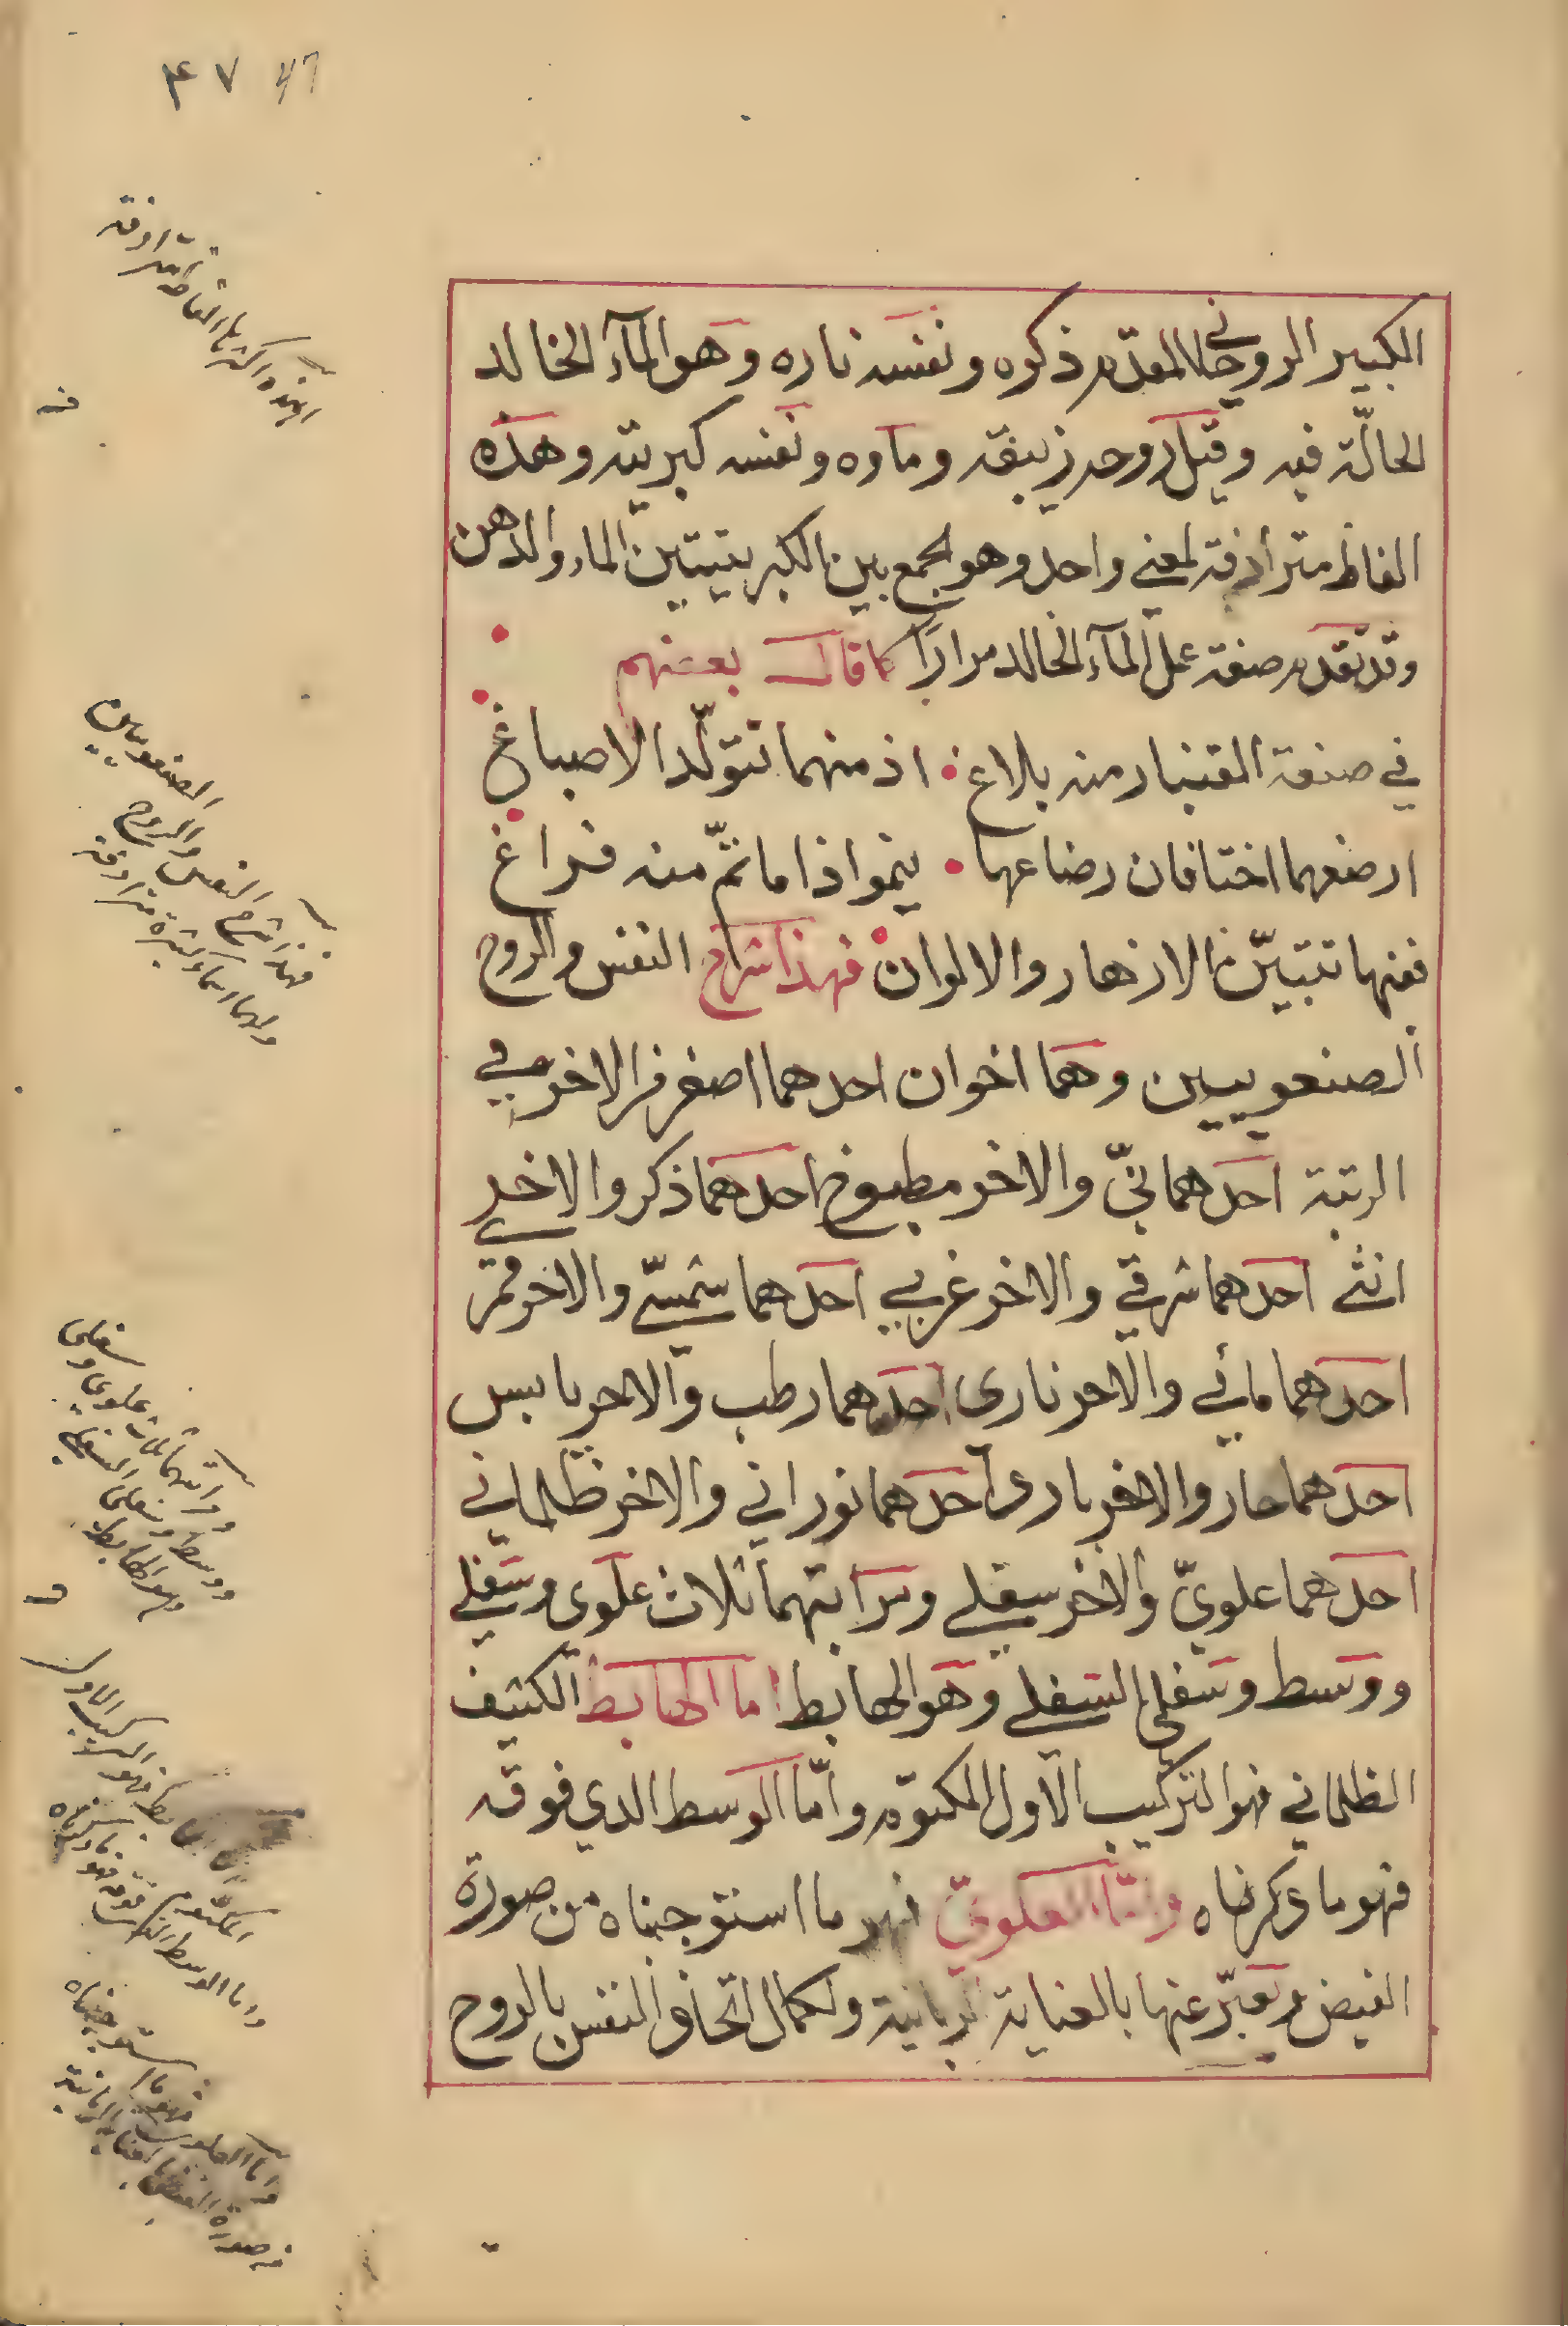 ٤٧ ٤٦
الكبير الروحاني المقدم ذكره ونفسه ناره وهو المآء الخالد
الحالّة فيه وقيل روحه زيبقه وماوه ونفسه كبريته وهذه
الفاظ مترادفة لمعني واحد وهو الجمع بين الكبريتيتين الماء والدهن
وقد تقدم صفة عمل المآء الخالد مرارًا كما قال بعضهم
في صنعة القنبار منه بلاغ اذ منهما تتولّد الاصباغ
ارضعهما اختا فان رضاعها ينموا اذا ما تمّ منه فراغ
فعنها تتبيّن الازهار والالوان فهذا شرح النفس والروح
الصنعويين وهما اخوان احدهما اصغر من الاخر في
الرتبة احدهما نيّ والاخر مطبوخ احدهما ذكر والاخر
انثي احدهما شرقي والاخر غربي احدهما شمسّي والاخر قمر
احدهما مائي والاخر ناري احدهما رطب والاخر يابس
احدهما حار والاخر بارد احدهما نوراني والاخر ظلماني
احدهما علويّ والاخر سفلي ومراتبهما ثلاث علوى وسفلي
ووسط وسفلي السفلي وهو الهابط اما الهابط الكثيف
الظلماني فهو التركيب الاول المكتوم وامّا الوسط الدي فوقه
فهو ما ذكرناه وامّا العلويّ فهو ما استوجبناه من صورة
الفيض ويعبّر عنها بالعناية الربانية ولكمال اتحاد النفس بالروح
الصنعويين
فهذا شرح النفس والروح
ولهما اسماء كثيرة مترادفة
ومراتبهما ثلاث علوي وسفلي
ووسط وسفلي السفلي
وهو الهابط
فهو التركيب الاول
المكتوم
واما الوسط الذي فوقه فهو ما ذكرناه
واما العلوي فهو ما استوجبناه
من صورة الفيض بالعناية الربانية